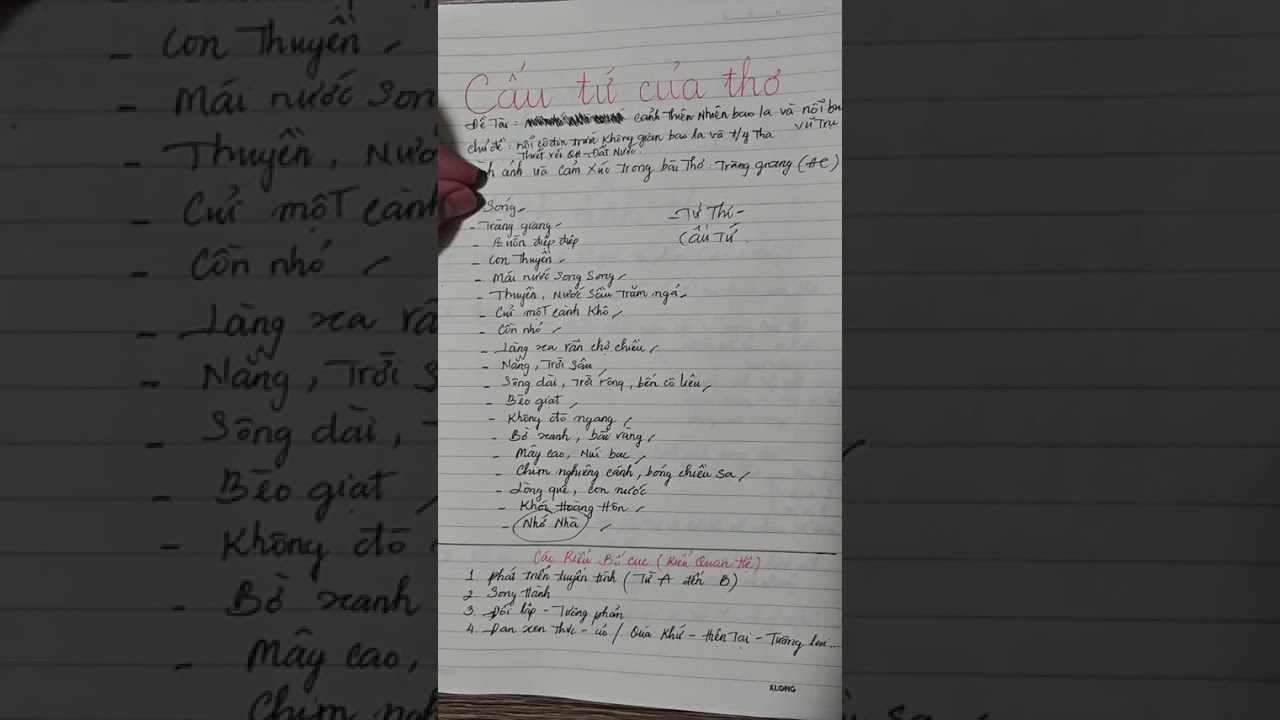 Cấu tứ của thơ
Đề Tài : cảnh Thiên Nhiên bao la và nỗi bu
Vũ Trụ
chủ đề : nỗi cô đơn trước Không gian bao la và t/y Tha
Thiết với QH - Đất Nước.
ảnh và cảm xúc trong bài Thơ : Tràng giang (HC)
- Sóng
- Tràng giang
- Buồn điệp điệp
- Con Thuyền
- Mái nước Song Song
- Thuyền, Nước Sầu Trăm ngả
- Củi một cành Khô
- Cồn nhỏ
- Làng xa vãn chợ chiều
- Nắng, Trời Sâu
- Sông dài, Trời rộng, bến cô liêu
- Bèo giạt
- Không đò ngang
- Bờ xanh, bãi vàng
- Mây cao, Núi bạc
- Chim nghiêng cánh, bóng chiều Sa
- Lòng quê, con nước
- Khói Hoàng Hôn
- Nhớ Nhà
- Tứ Thi -
Cấu Tứ
Các Kiểu Bố cục (Kiểu Quan Hệ)
1. phát triển tuyến tính (Từ A đến B)
2. Song Hành
3. Đối lập - Tương phản
4. Đan xen Thực - ảo / Quá Khứ - Hiện Tại - Tương lai...
KLONG
- Con Thuyền
- Mái nước Son
- Thuyền, Nướ
- Củi một cành
- Cồn nhỏ
- Làng xa vã
- Nắng, Trời S
- Sông dài,
- Bèo giạt
- Không đò
- Bờ xanh
- Mây cao,
Chim ngh
Sa